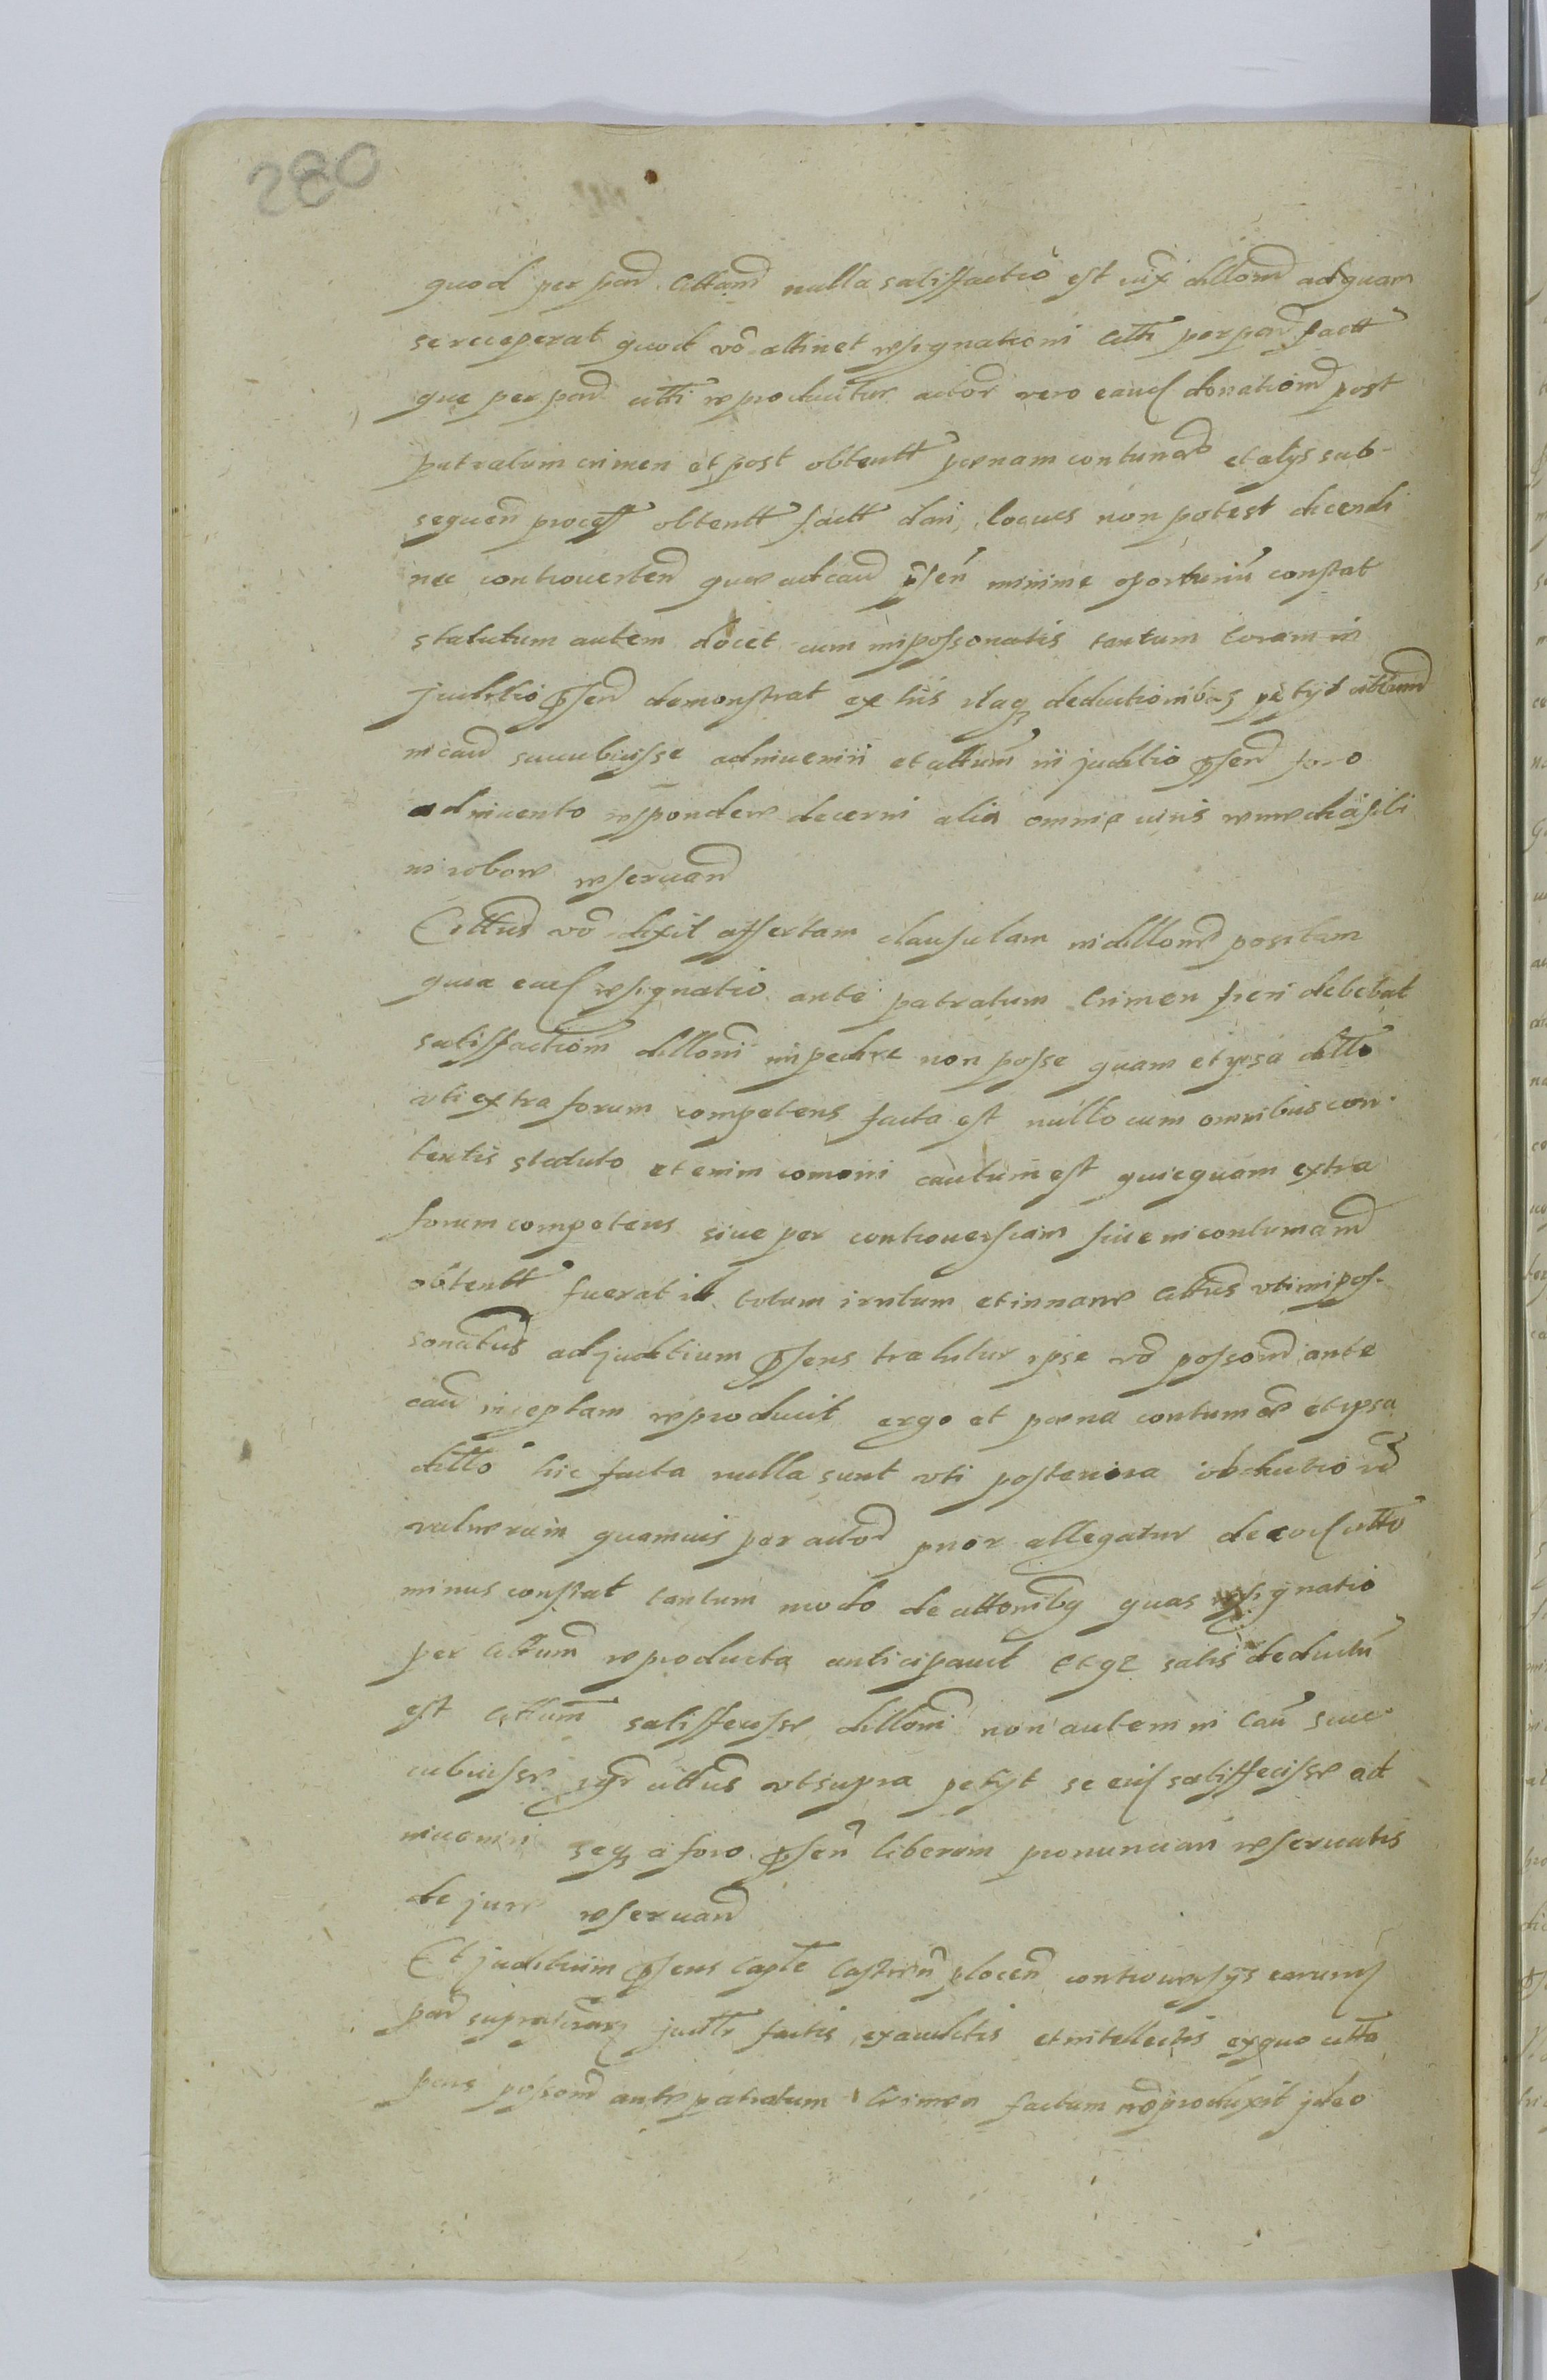 280
quod per par Cittam nulla satisfactio est iux dillom ad quam
se receperat quod vo attinet resignationi Citti per par factt
que per par citti reproducitur actor vero eand donatiom post
patratum crimen et post obtentt poenam contumac et alys sub-
sequen process obtentt factt dari locus non potest dicendi
nec controvertend quae ad cau psen minime oportunu constat
statutum autem docet cum impossonatis tantum coram in
juditio psen demonstrat ex his itaq deductionibus petyt cittum
in cau succubuisse adinveniri et cittum in juditio psen foro
adinvento respondere decerni alia omnia iuris remedia sibi
in robore reservan
Cittus vo dixit assertam clausulam in dillone positam
quia eius resignatio ante patratum crimen fieri debebat
satisfactiom dilloni impedire non posse quam et ipsa ditto
uti extra forum competens facta est nullo cum omnibus con-
tentis statuto etenim comoni cautum est quicquam extra
forum competens sive per controversiam sive in contumam
obtentt fuerat id totum iritum et innane Cittus uti impos-
sonatus ad juditium psens trahitur ipse vo possom ante
cau inceptam reproducit ergo et poena contumae et ipsa
ditto hic facta nulla sunt uti posteriora obductio
vulnerum quamvis per actor prior allegatur de eius citto
minus constat tantum modo de cittonibq quas resignatio
per Cittum reproducta anticipavit et qz satis deductu
est Cittum satisfecisse dillom non autem in cau suc-
cubuisse igr cittus ut supra petyt se eius satisfecisse ad
inveniri seq a foro psen liberum pronunciari reservatis
de jure reservan
Et juditium psens capte Castren plocen controversys earund
par supra juditr factis exauditis et intellectis ex quo citta
pars possom ante patratum crimen factum reproduxit ideo